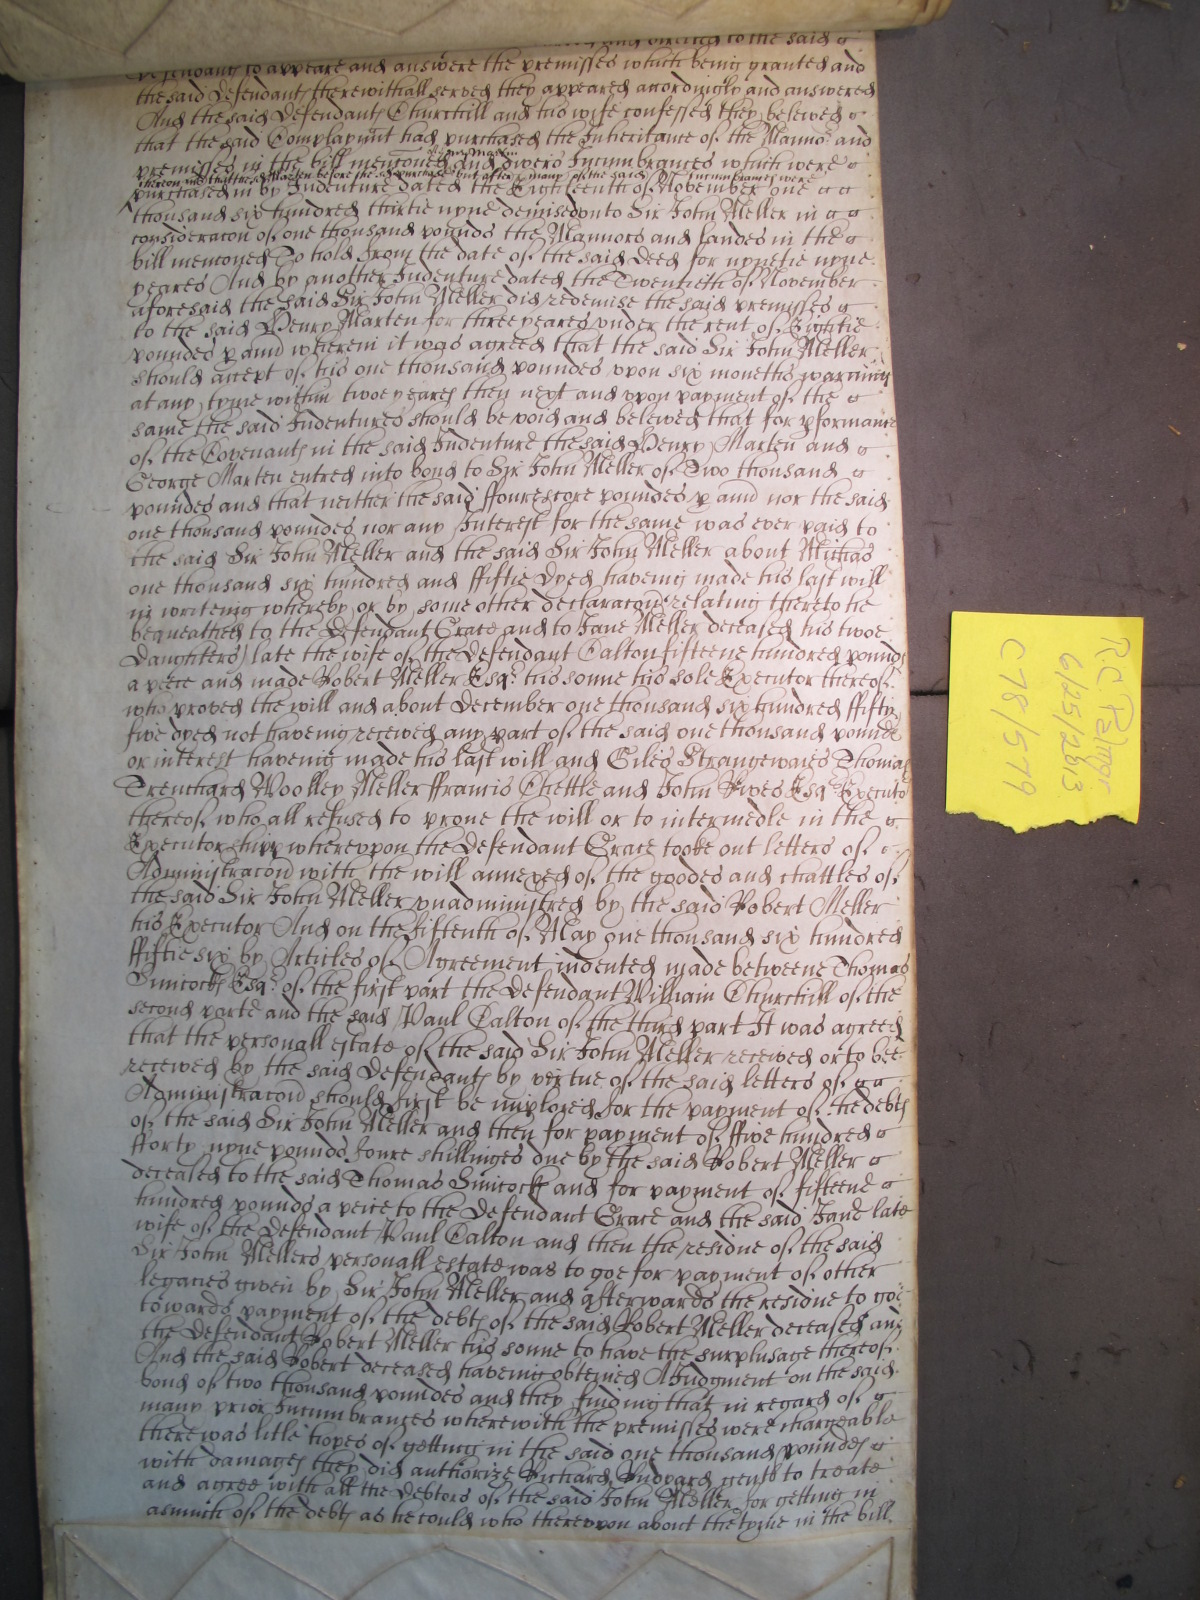 and directed to the said
Defendants to appeare and answere the premisses which being granted and
the said Defendants therewithall served they appeared accordingly and answered
And the said Defendants Churchill and his wife confessed they beleived
that the said Complaynant had purchased the Inheritance of the Mannor and
premisses in the bill menconed and divers Incumbrances which were
thereon
Marten before the said purchase but after many of the said Incumbrances were
purchased in by Indenture dated the Eighteenth of November one
thousand six hundred thirtie nyne demised unto Sir John Meller in
consideracon of one thousand pounds the Mannors and landes in the
bill menconed To hold from the date of the said deed for nynetie nyne
yeares And by another Indenture dated the Twentieth of November
aforesaid the said Sir John Meller did redemise the said premisses
to the said Henry Marten for three yeares under the rent of Eightie
poundes p ann wherein it was agreed that the said Sir John Meller
should accept of his one thousand poundes upon six moneths warning
at any tyme within twoe yeares then next and upon payment of the
same the said Indentures should be void and beleived that for pformance
of the Covenants in the said Indenture the said Henry Marten and
George Marten entred into bond to Sir John Meller of Two thousand
poundes and that neither the said ffourescore poundes p ann nor the said
one thousand poundes nor any Interest for the same was ever paid to
the said Sir John Meller and the said Sir John Meller about Michas
one thousand six hundred and ffiftie dyed haveing made his last will
in writeing whereby or by some other declaracon relating thereto he
bequeathed to the Defendant Grace and to Jane Meller deceased his twoe
Daughters late the wife of the Defendant Calton fifteene hundred pounds
a peice and made Robert Meller Esqr his sonne his sole Executor thereof
who proved the will and about December one thousand six hundred ffifty
five dyed not haveing received any part of the said one thousand pounds
or interest haveing made his last will and Giles Strangewaies Thomas
Trenchard Woolley Meller ffrancis Chettle and John Rives Esqrs Executors
thereof who all refused to prove the will or to intermedle in the
Executorshipp whereupon the Defendant Grace tooke out letters of
Administracon with the will annexed of the goodes and chattles of
the said Sir John Meller unadministred by the said Robert Meller
his Executor And on the fifteenth of May one thousand six hundred
ffiftie six by Articles of Agreement indented made betweene Thomas
Simcocks Esqr of the first part the Defendant William Churchill of the
second parte and the said Paul Calton of the third part It was agreed
that the personall estate of the said Sir John Meller received or to bee
received by the said Defendants by vertue of the said letters of
Administracon should first be imployed for the payment of the debts
of the said Sir John Meller and then for payment of ffive hundred
fforty nyne pounds foure shillinges due by the said Robert Meller
deceased to the said Thomas Simcocks and for payment of fifteene
hundred pounds a peice to the Defendant Grace and the said Jane late
wife of the Defendant Paul Calton and then the residue of the said
Sir John Mellers personall estate was to goe for payment of other
legacies given by Sir John Meller and afterwards the residue to goe
towards payment of the debts of the said Robert Meller deceased and
the Defendant Robert Meller his sonne to have the surplusage thereof
And the said Robert deceased haveing obteined A Judgment on the said
bond of two thousand poundes and they finding that in regard of
many prior Incumbrances wherewith the premisses were chargeable
there was litle hopes of getting in the said one thousand poundes
with damages they did authorize Richard Rudyard gent to treate
and agree with all the debtors of the said John Meller for getting in
asmuch of the debts as he could who thereupon about the tyme in the bill
R.C. Palmer
6/25/2013
C78/579